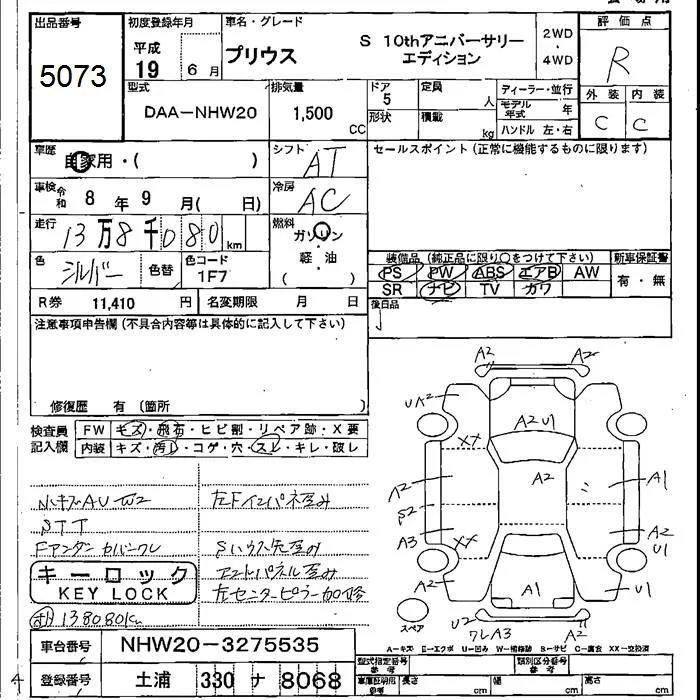 出品番号
5073
初度登録年月
平成
19 6月
車名・グレード
プリウス
S 10thアニバーサリー
エディション
2WD
・
4WD
評価点
R
外装 内装
C C
型式
DAA-NHW20
排気量
1,500
CC
ドア
5
形状
定員
人
積載
kg
ディーラー・並行
モデル年式 年
ハンドル 左・右
車歴
自家用・( )
シフト
AT
セールスポイント(正常に機能するものに限ります)
車検 令和 8年 9月( 日)
冷房
AC
走行
13万8千080km
燃料
ガソリン
軽・油
( )
色
シルバー
色替
色コード
1F7
装備品(純正品に限り○をつけて下さい)
PS PW ABS エアB AW
SR ナビ TV カワ
新車保証書
有・無
R券 11,410円
名変期限 月 日
後日品
注意事項申告欄(不具合内容等は具体的に記入して下さい)
修復歴 有(箇所 )
検査員
記入欄
FW キズ・飛石・ヒビ割・リペア跡・X要
内装 キズ・汚レ・コゲ・穴・スレ・キレ・破レ
小キズAU W2
STT
Fアンダーカバーワレ
キーロック
KEY LOCK
138080km
左Fインパネ歪み
Sハウス先歪み
アントパネル歪み
左センターピラー加修
A2 A2
UA2
A2U1
XX
A2
A2
A1
S2
A3
XX
A2
U1
A2
A1
U1
スペア
U2
ワレA3
A2
A-キズ E-エクボ U-凹み W-補修跡 S-サビ C-腐食 XX-交換済
車台番号 NHW20-3275535
登録番号 土浦 330 ナ 8068
型式指定番号
類別区分番号
長さ cm
幅 cm
高さ cm